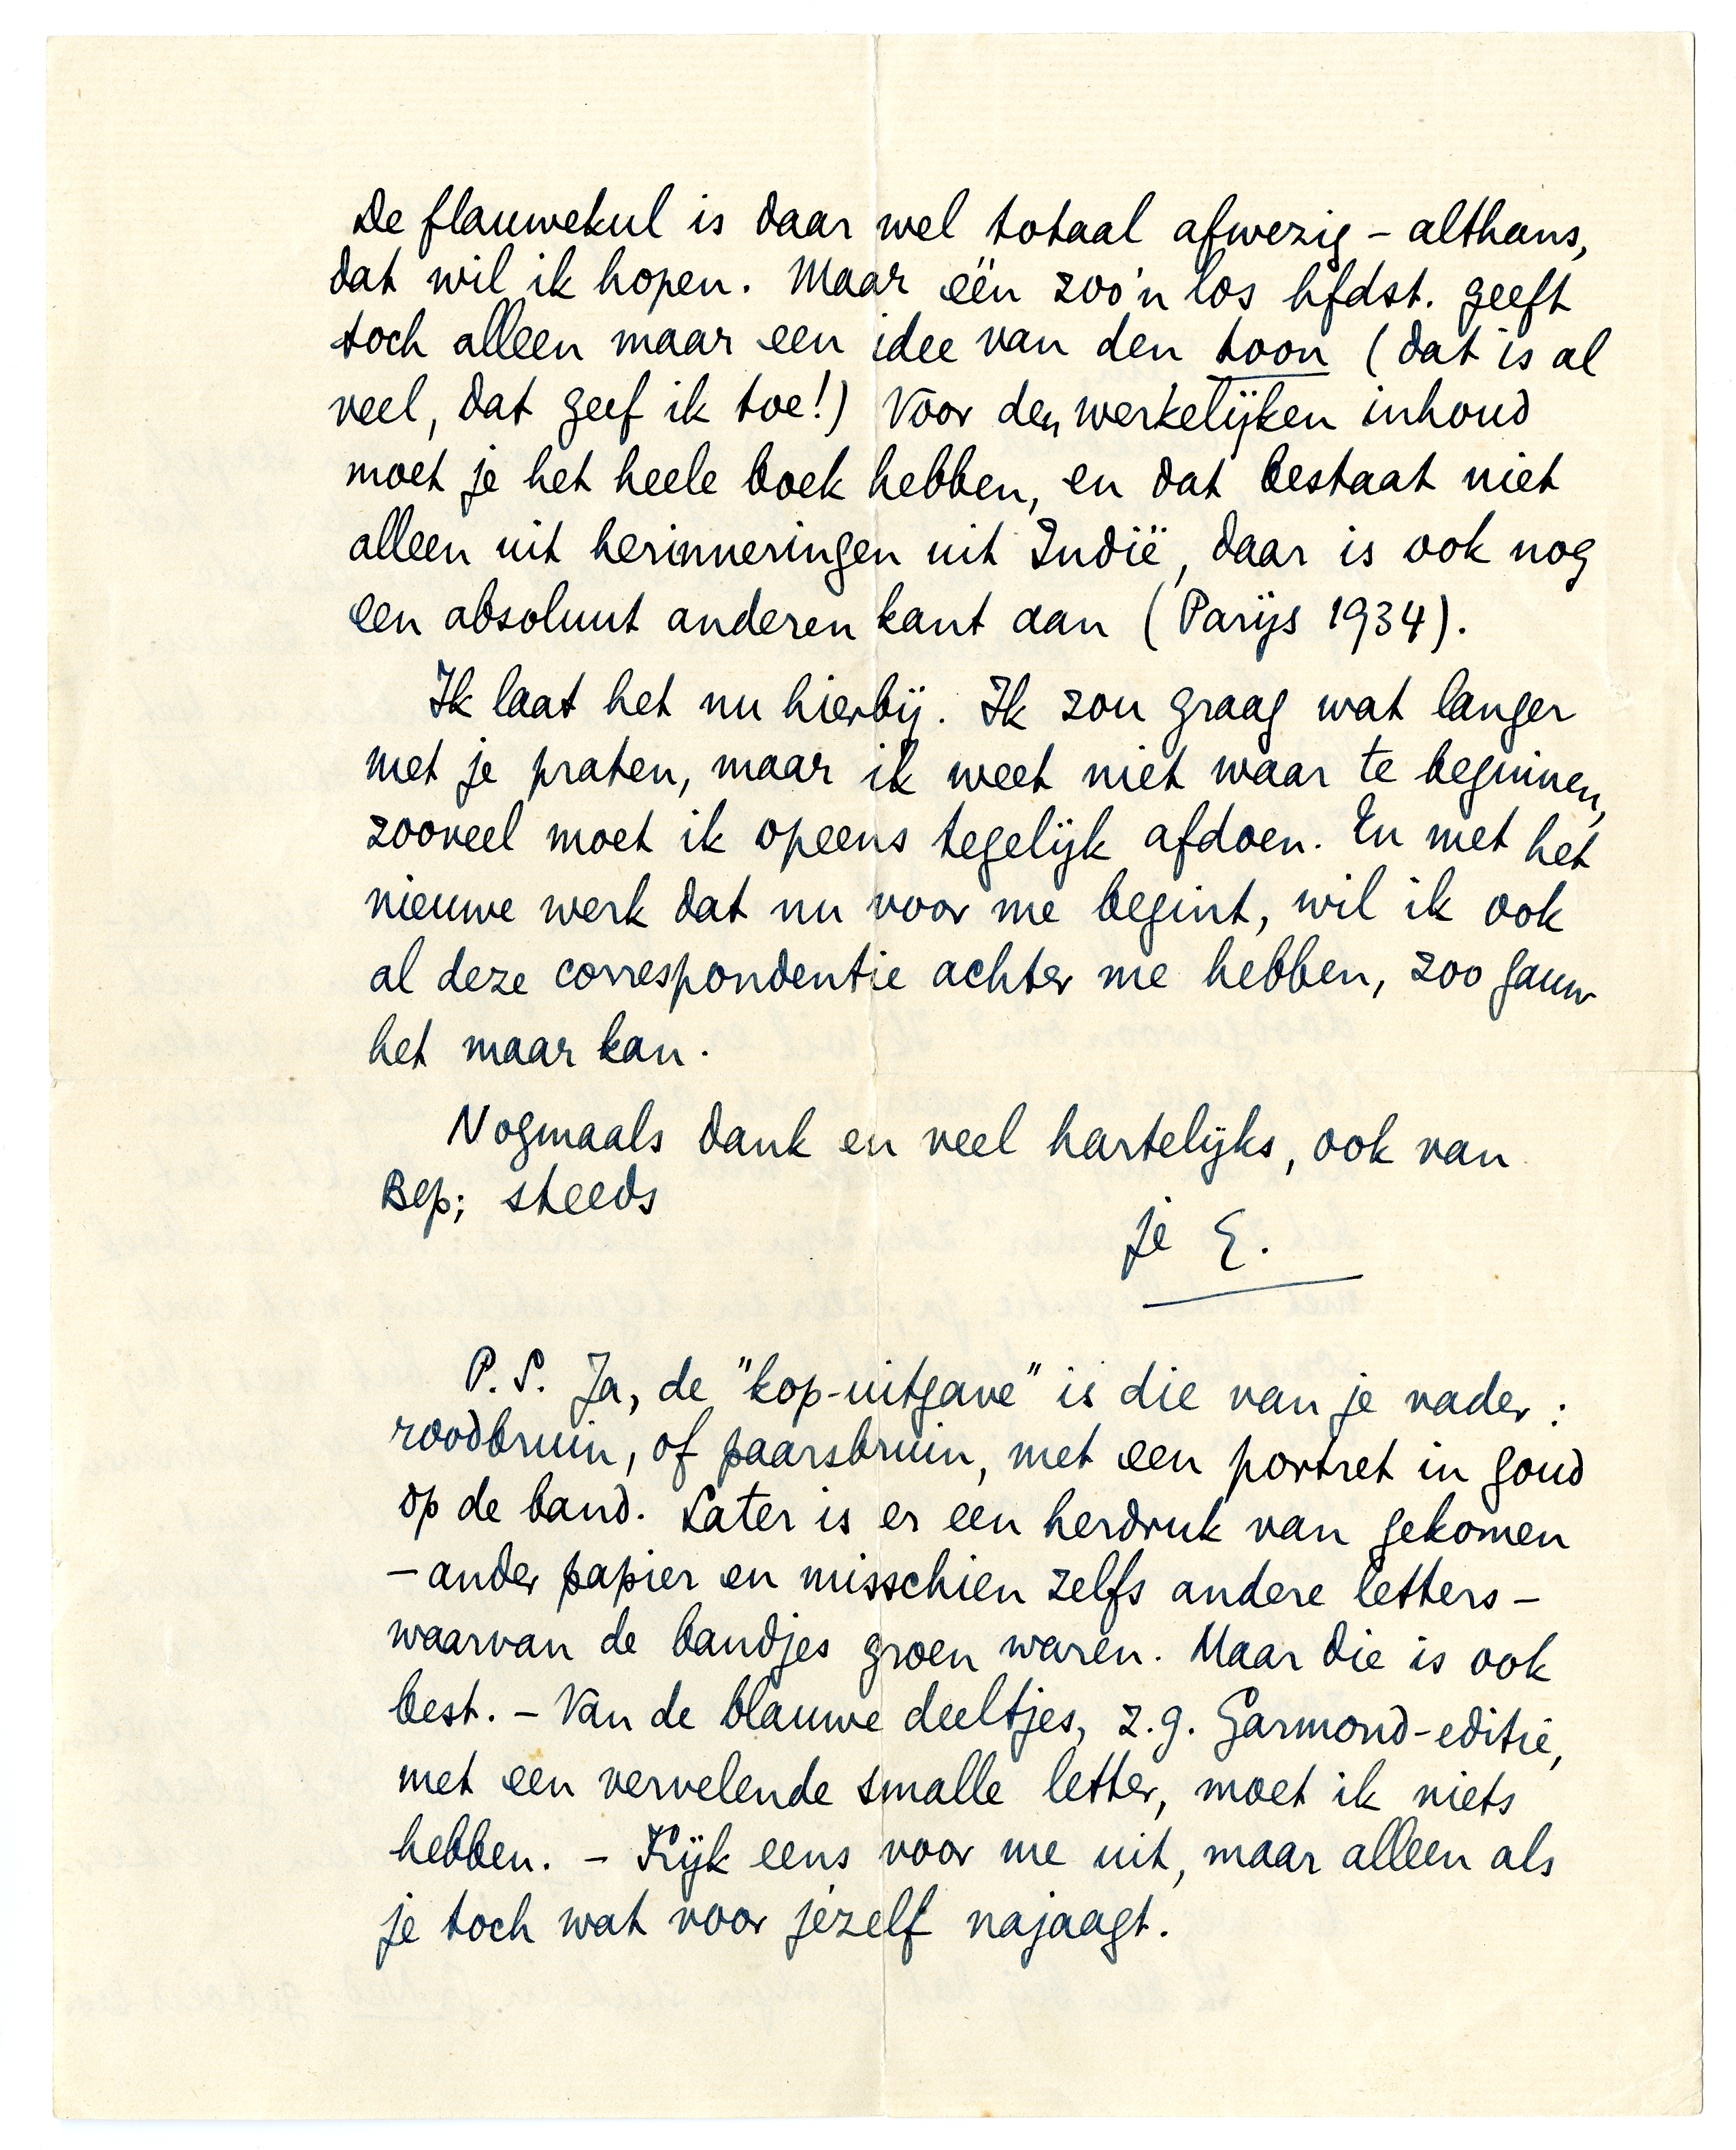 De flauwekul is daar wel totaal afwezig – althans,
dat wil ik hopen. Maar één zoo'n los hfdst. geeft
toch alleen maar een idee van den toon (dat is al
veel, dat geef ik toe!) Voor den werkelijken inhoud
moet je het heele boek hebben, en dat bestaat niet
alleen uit herinneringen uit Indië, daar is ook nog
een absoluut anderen kant aan (Parijs 1934).
Ik laat het nu hierbij. Ik zou graag wat langer
met je praten, maar ik weet niet waar te beginnen,
zooveel moet ik opeens tegelijk afdoen. En met het
nieuwe werk dat nu voor me begint, wil ik ook
al deze correspondentie achter me hebben, zoo gauw
het maar kan.
Nogmaals dank en veel hartelijks, ook van
Bep; steeds
je E.
P.S. Ja, de "kop-uitgave" is die van je vader:
roodbruin, of paarsbruin, met een portret in goud
op de band. Later is er een herdruk van gekomen
– ander papier en misschien zelfs andere letters –
waarvan de bandjes groen waren. Maar die is ook
best. – Van de blauwe deeltjes, z.g. Garmond-editie,
met een vervelende smalle letter, moet ik niets
hebben. – Kijk eens voor me uit, maar alleen als
je toch wat voor jezelf najaagt.